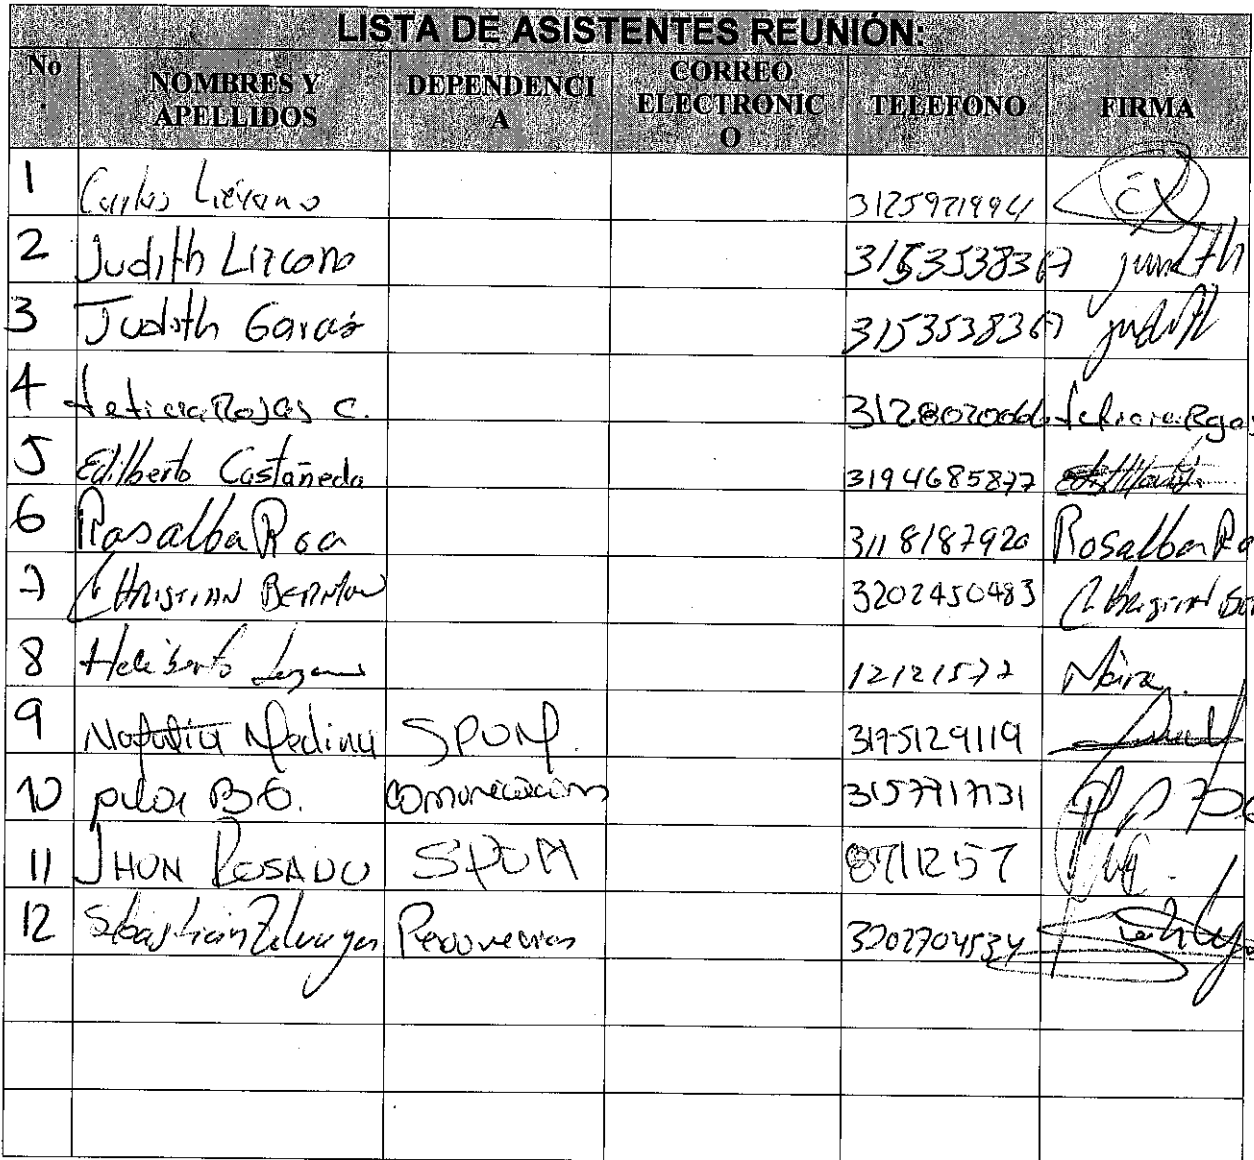 LISTA DE ASISTENTES REUNIÓN:
No. NOMBRES Y APELLIDOS DEPENDENCIA CORREO ELECTRONICO TELEFONO FIRMA
1 Carlos Liévano 3125971994
2 Judith Lizcono 3153538367 judith
3 Judith Garcés 3153538367 judith
4 Leticia Rojas C. 3128020066 Leticia Rojas
5 Edilberto Castañeda 3194685877
6 Rosalba Roa 3118187920 Rosalba Ro
7 CHRISTIAN 3202450483 Christian
8 Heliberto 12121577
9 Natalia Medina SPUM. 3175129119
10 pilar B.O. comunicaciones 3157717131
11 JHON ROSADO SPUM 8711257
12 3202704534